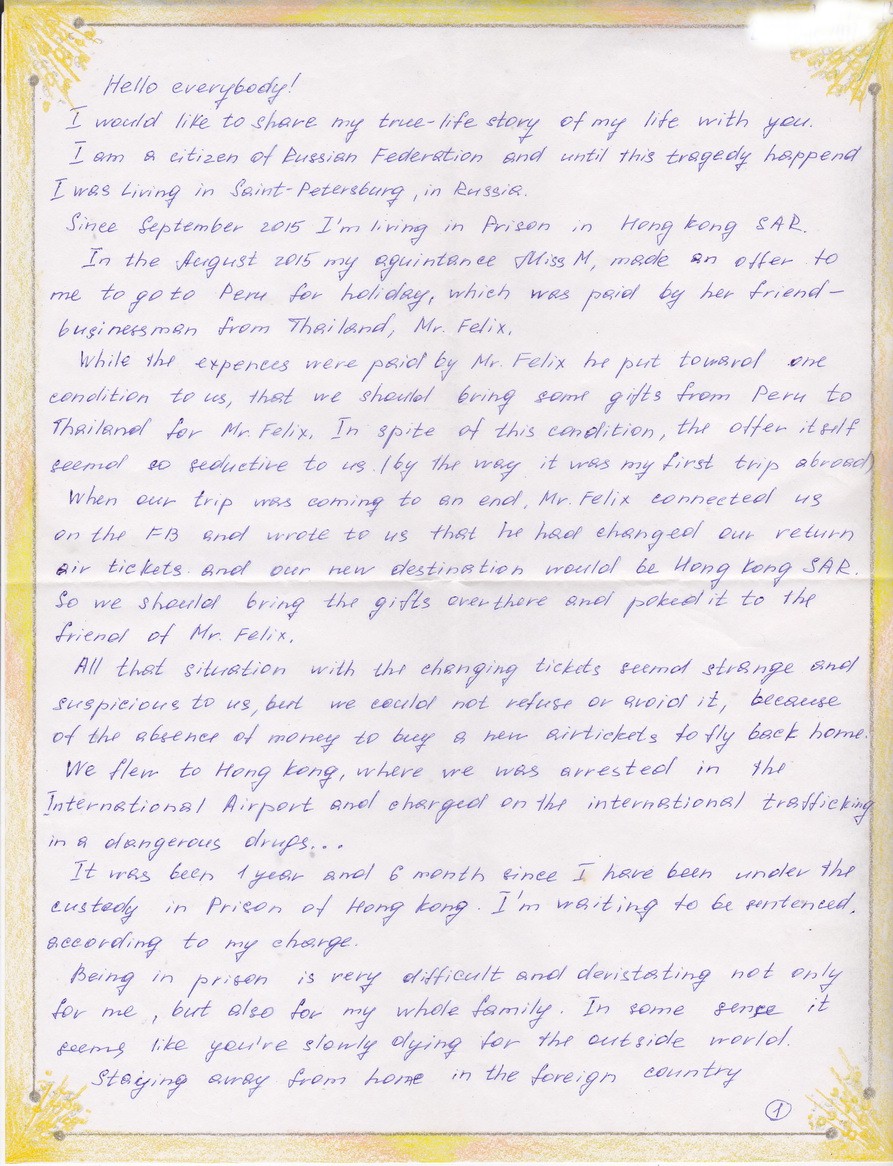 Hello everybody!
I would like to share my true-life story of my life with you.
I am a citizen of Russian Federation and until this tragedy happend
I was living in Saint-Petersburg, in Russia.
Since September 2015 I'm living in Prison in Hong Kong SAR.
In the August 2015 my aquintance Miss M, made an offer to
me to go to Peru for holiday, which was paid by her friend-
businessman from Thailand, Mr. Felix.
While the expences were paid by Mr. Felix he put toward one
condition to us, that we should bring some gifts from Peru to
Thailand for Mr. Felix. In spite of this condition, the offer itself
seemd so seductive to us (by the way it was my first trip abroad)
When our trip was coming to an end, Mr. Felix connected us
on the FB and wrote to us that he had changed our return
air tickets and our new destination would be Hong Kong SAR.
So we should bring the gifts overthere and poked it to the
friend of Mr. Felix.
All that situation with the changing tickets seemd strange and
suspicious to us, but we could not refuse or avoid it, because
of the absence of money to buy a new airtickets to fly back home.
We flew to Hong Kong, where we was arrested in the
International Airport and charged on the international trafficking
in a dangerous drugs...
It was been 1 year and 6 month since I have been under the
custody in Prison of Hong Kong. I'm waiting to be sentenced,
according to my charge.
Being in prison is very difficult and devistating not only
for me, but also for my whole family. In some sense it
seems like you're slowly dying for the outside world.
Staying away from home in the foreign country
1